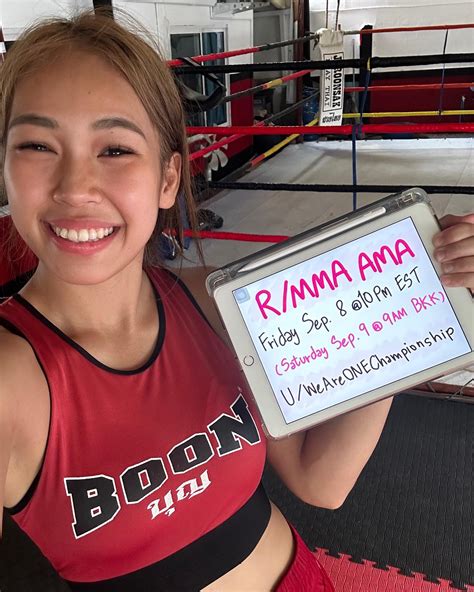 JAROONSAK
MUAY THAI
R/MMA AMA
Friday Sep. 8 @10pm EST
(Saturday Sep. 9 @9AM BKK)
U/WeAreONEChampionship
BOON
บุญ